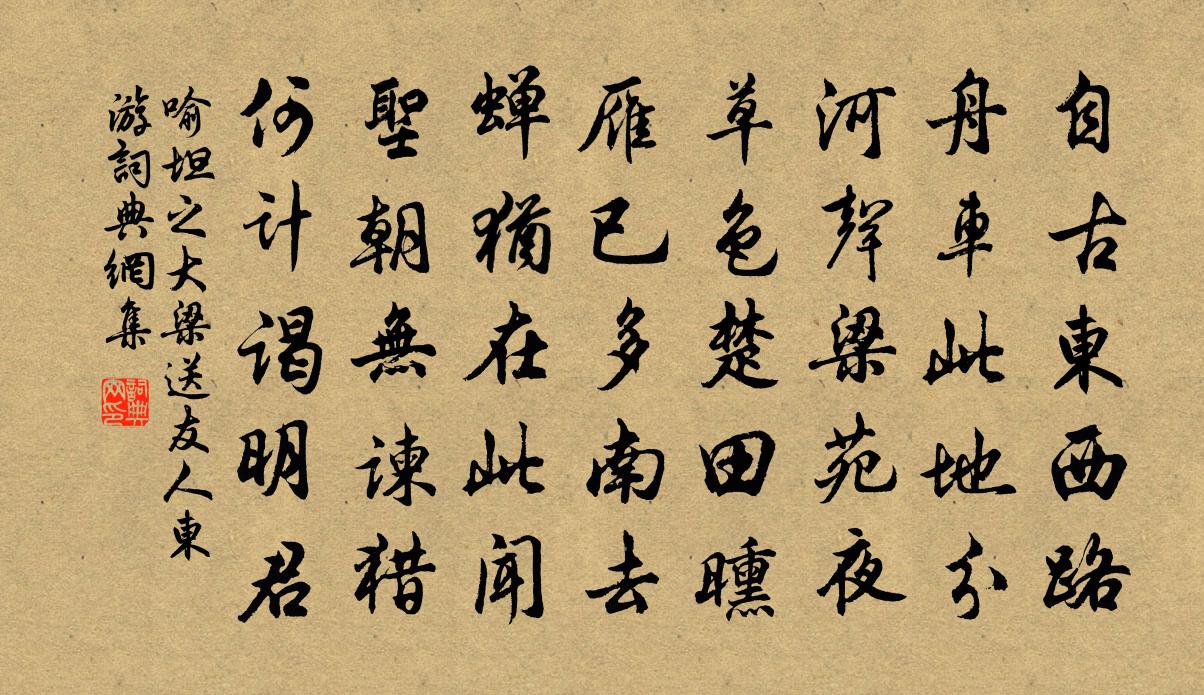 自古東西路
舟車此地分
河聲梁苑夜
草色楚田曛
雁已多南去
蝉猶在此聞
聖朝無諫猎
何计谒明君
喻坦之大梁送友人東
游詞典網集
詞典
网印